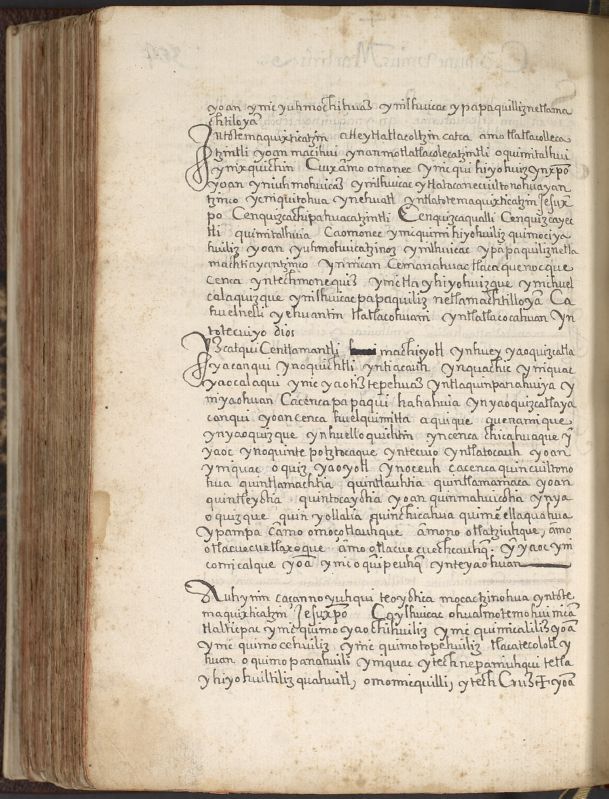 yoan ynic yuhmochihuaz ynilhuicac ypapaquilliznetlama
chtiloyā
Intotemaquixticatzin atleytlatlacoltzin catca amo tlatlacolleca
tzintli yoan macihui ynanmotlatlacolecatzintli oquimitalhui
ynixquichin Cuixāmo omonec ynic quihiyohuiz ynxp̄o
yoan yniuhmohuicaz ynilhuicac ytlatocanecuiltonohuayan
tzinco yeniquitohua ynehuatl yntlatotemaquixticatzin Jesux
po Cenquizcachipahuacatzintli Cenquizcaqualli Cenquizcayec
tli quimitalhuia Caomonec ynicquimihiyohuiliz quimociya
huiliz yoan yuhmohuicatzinoz ynilhuicac ypapaquiliznetla
machtiayantzinco ynnican Cemanahuac tlaca quenocque
cenca yntechmonequis ynictlayhiyohuizque ynichuel
calaquizque ynilhuicac papaquiliz netlamachtilloyā Ca
huelnelli yehuantin tlatlacohuani yntlatlacocahuan yn
totecuiyo dios
Izcatqui Centlamantli machiyotl ynhuey yaoquizcatla
yacanqui ynoquichtli yntiacauh ynquachic yniquac
yaocalaqui ynic yaotiztepehuaz yntlaquinpanahuiya y
myaohuan Cacencapapaqui hahahuia ynyaoquizcatlaya
canqui yoan cenca huelquimitta aquique quenamique
ynyaoquizque ynhuelloquichtin yncenca chicahuaque y
yaoc ynoquintepotztocaque yntecuio yntlatocauh yoan
yniquac oquiz yaoyotl ynoceuh cacenca quincuiltono
hua quintlamachtia quintlauhtia quintlamamaca yoan
quintleyotia quintocayotia yoan quinmahuizotia ynya
oquizque quin yollalia quinchicahua quimellaquahua
ypampa cāmo omocotlauhque āmono otlatziuhque, āmo
otlacuecuetlaxoque āmo otlacuecuechcauhq̄. yyaoc yni
comicalque yoā ynicoquipeuhq̄ ynteyaohuan
Auh ynin caçannoyuhqui teoyotica mocaczinohua yntote
maquixticatzin Jesuxp̄o Cqylhuicac ohualmotemohui nicā
tlalticpac ynic quimoyaochihuiliz ynic quimicaliliz yoā
ynic quimocehuiliz ynic quimotopehuiliz tlacatecolotly
huan oquimopanahuili yniquac ytechnepaniuhqui tetla
yhiyohuiltiliz quahuitl, omomiquilli, ytech Cruz ✝ yoā